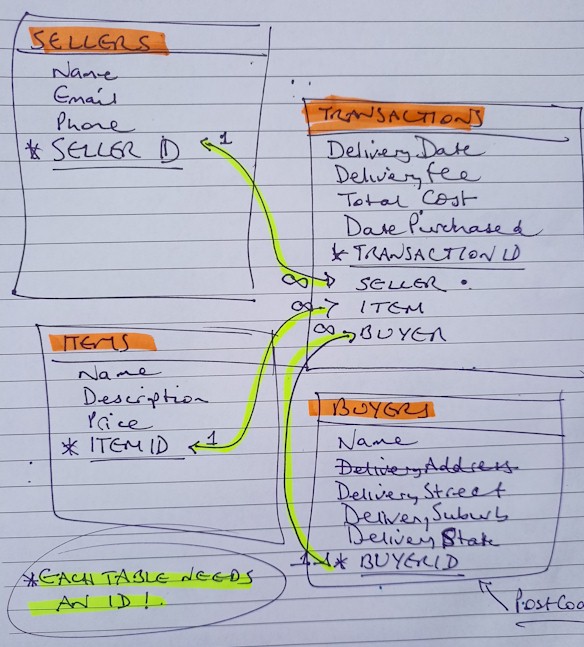 SELLERS
Name
Email
Phone
* SELLER ID
1
TRANSACTIONS
Delivery Date
Delivery Fee
Total Cost
Date Purchased
* TRANSACTION ID
∞ SELLER
∞ ITEM
∞ BUYER
ITEMS
Name
Description
Price
* ITEM ID
1
BUYERS
Name
Delivery Address
Delivery Street
Delivery Suburb
Delivery State
1 * BUYER ID
* EACH TABLE NEEDS
AN ID!